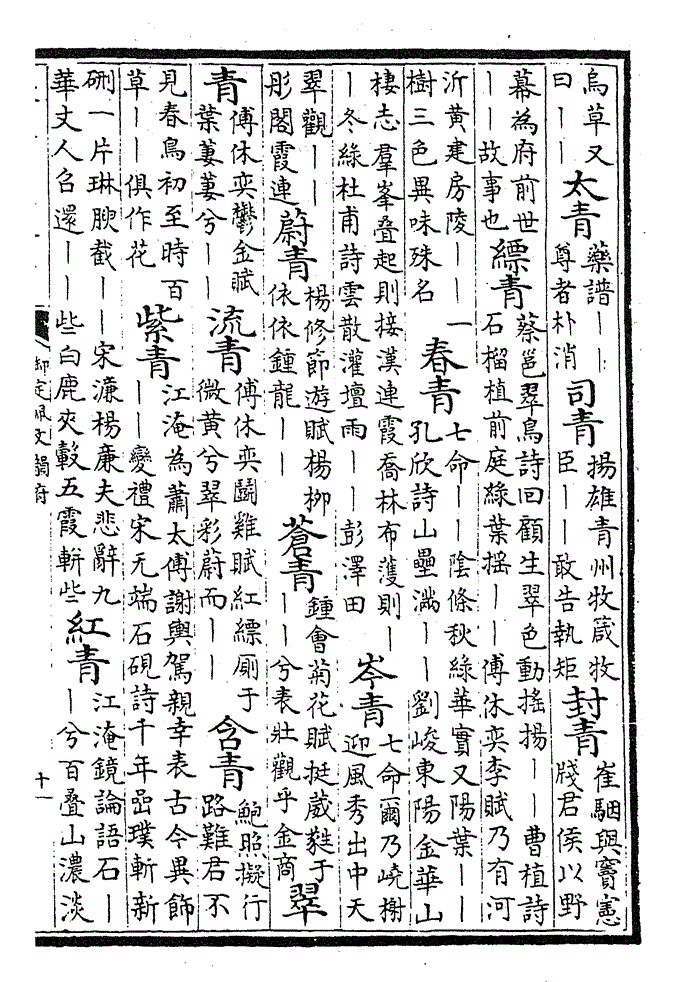 烏草又曰｜｜太青藥譜｜｜尊者朴消司青揚雄青州牧箴牧臣｜｜敢告執矩封青崔駰與竇憲牋君侯以野
幕為府前世｜｜故事也縹青蔡邕翠鳥詩回顧生翠色動搖揚｜｜曹植詩石榴植前庭綠葉搖｜｜傅休奕李賦乃有河
沂黃建房陵｜｜一樹三色異味殊名春青七命｜｜陰條秋綠華實又陽葉｜｜孔欣詩山壘滿｜｜劉峻東陽金華山
棲志羣峯叠起則接漢連霞喬林布濩則｜｜冬綠杜甫詩雲散灌壇雨｜｜彭澤田岑青七命爾乃嶢榭迎風秀出中天
翠觀｜｜彤閣霞連蔚青楊修節遊賦楊柳依依鍾龍｜｜蒼青鍾會菊花賦挺葳蕤于｜｜兮表壯觀乎金商翠
青傅休奕鬱金賦葉萋萋兮｜｜流青傅休奕鬭雞賦紅縹厠于微黃兮翠彩蔚而｜｜含青鮑照擬行路難君不
見春鳥初至時百草｜｜俱作花紫青江淹為蕭太傅謝輿駕親幸表古今異飾｜｜變禮宋无端石硯詩千年嵒璞斬新
硎一片琳腴截｜｜宋濂楊廉夫悲辭九華丈人召還｜｜些白鹿夾轂五霞軿些紅青江淹鏡論語石｜｜兮百叠山濃淡
御定佩文韻府
十一